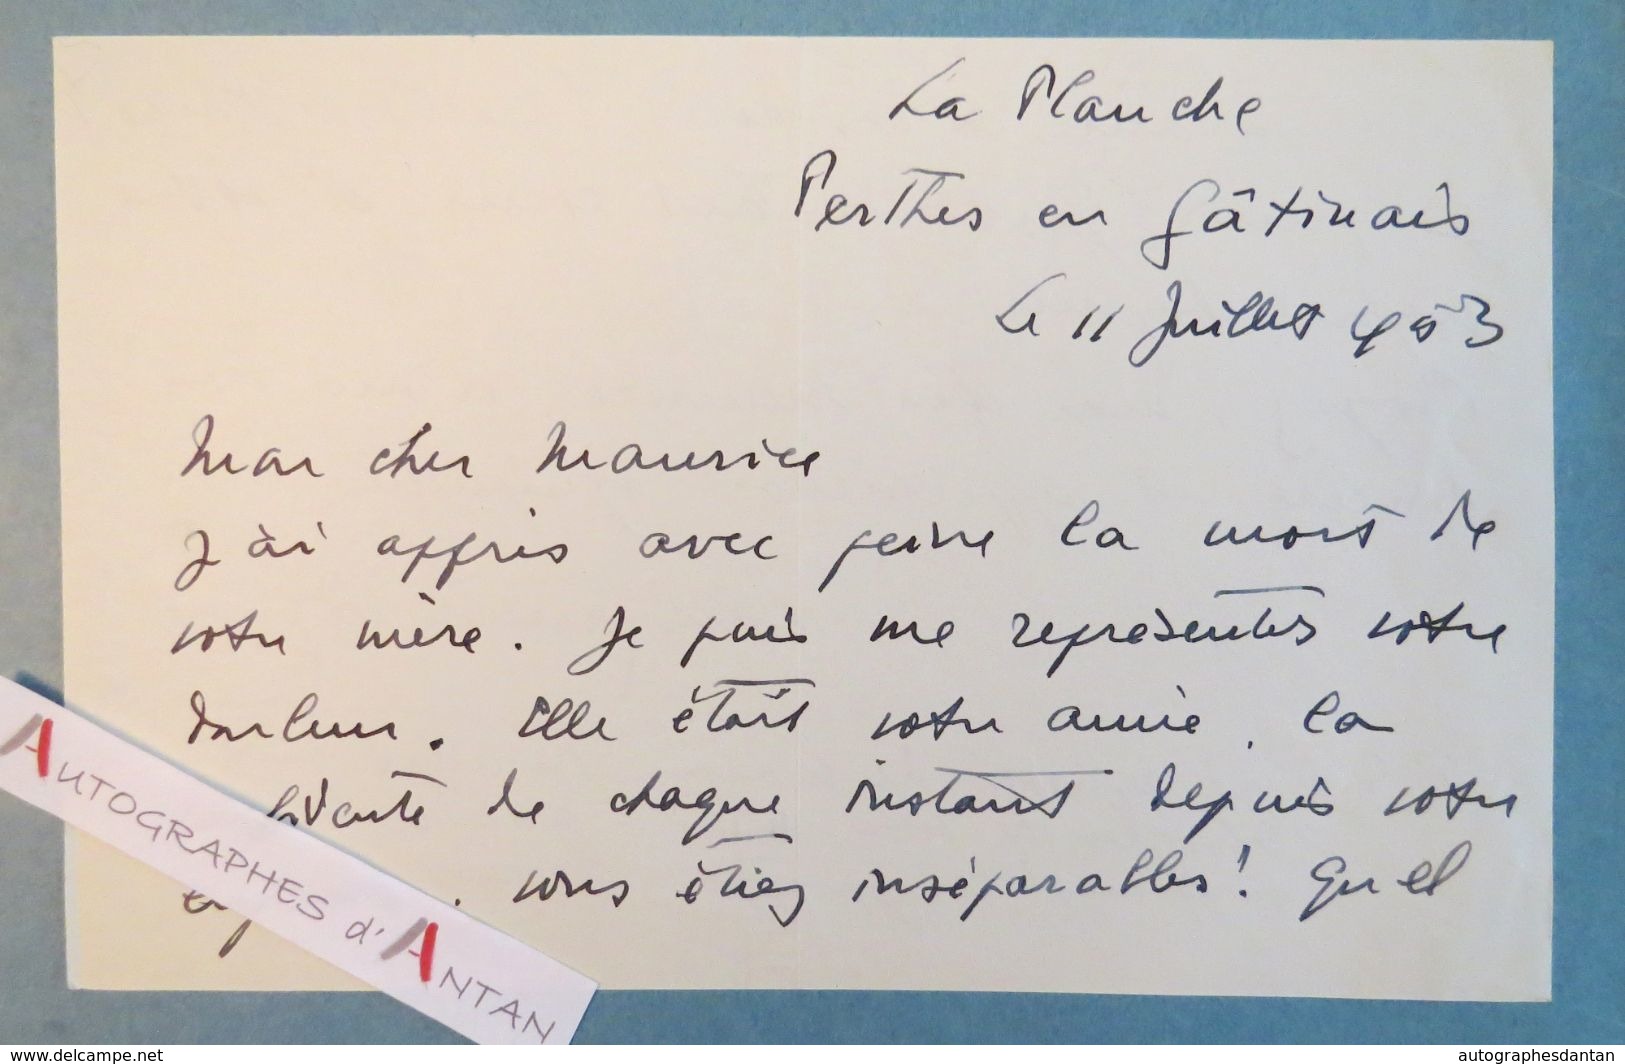 La Planche
Perthes en Gâtinais
Le 11 Juillet 1953
Mon cher Maurice
J'ai appris avec peine la mort de
votre mère. Je puis me représenter votre
douleur. Elle était votre amie, la
de chaque instant depuis votre
. vous étiez inséparables! Quel
AUTOGRAPHES d'ANTAN
www.delcampe.net
autographesdantan